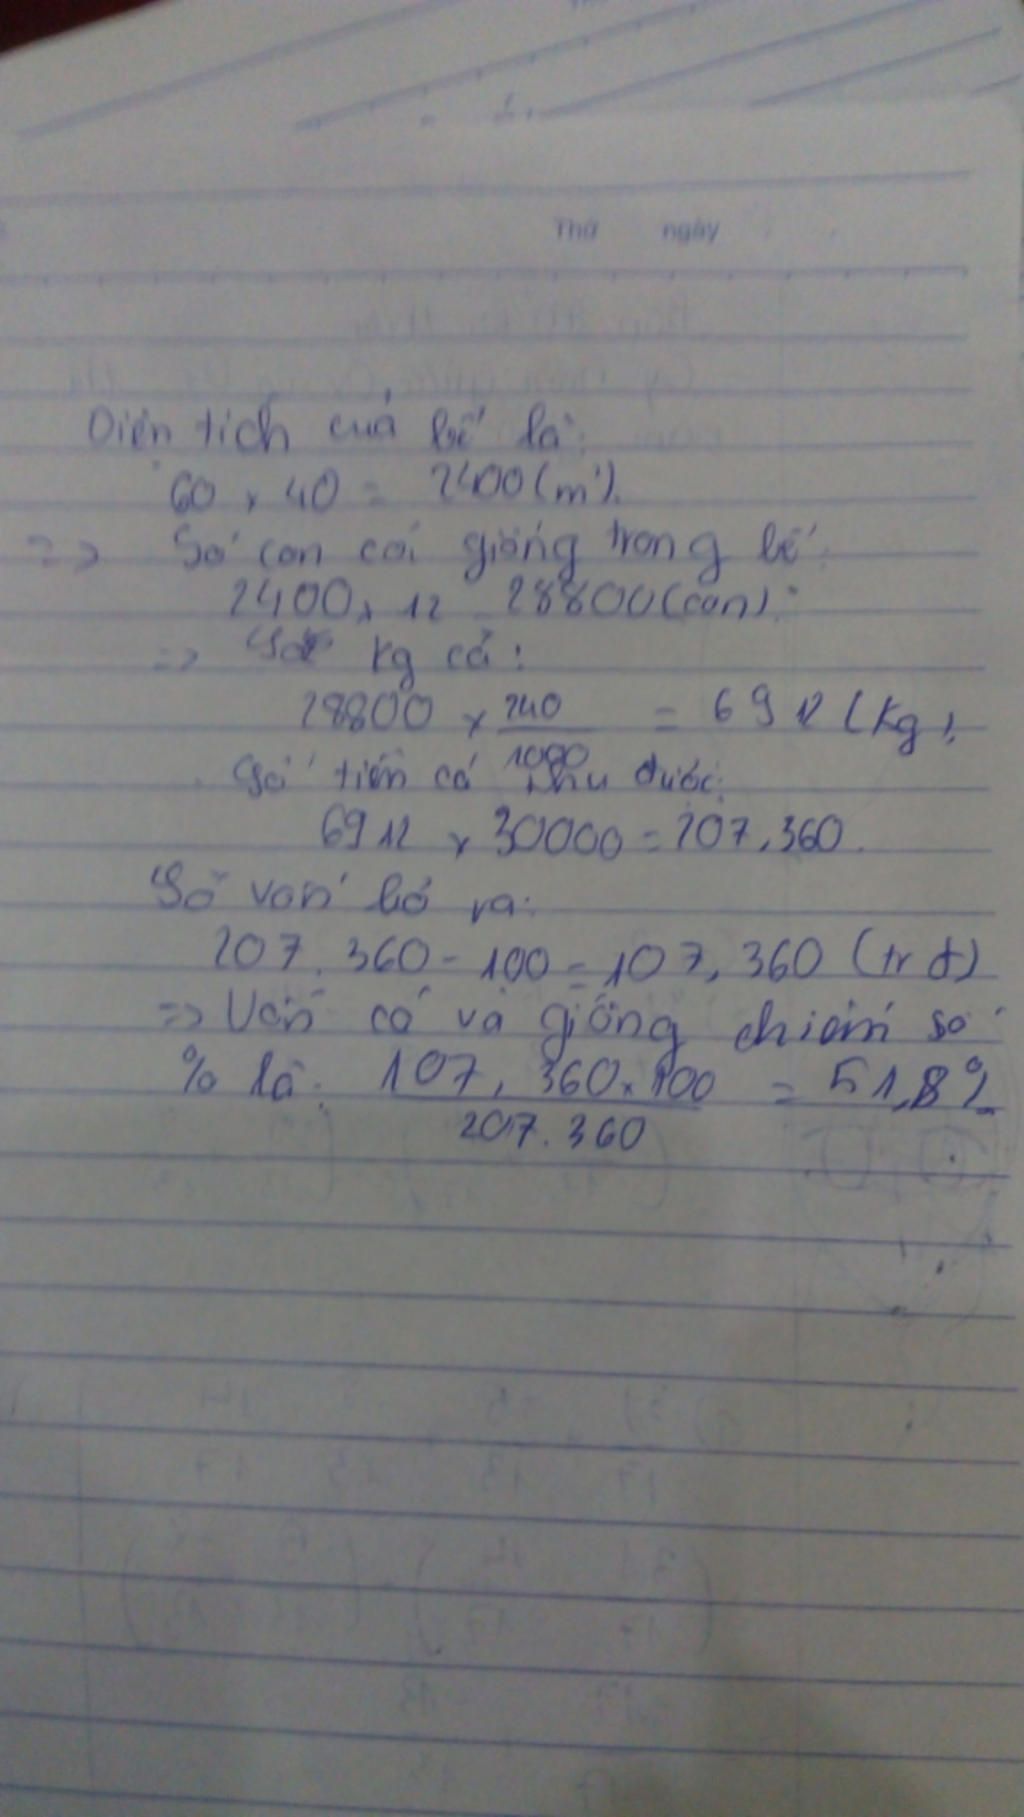 Thứ ngày
Diện tích của bể là:
60 x 40 = 2400 (m²).
=> Số con cá giống trong bể:
2400 x 12 = 28800 (con).
=> Số kg cá:
28800 x 240/1000 = 6912 (kg).
Số tiền cá thu được:
6912 x 30000 = 207,360.
Số vốn bỏ ra:
207.360 - 100 = 107,360 (tr đ)
=> Vốn cá và giống chiếm số
% là: 107,360 x 100 / 207.360 = 51,8%